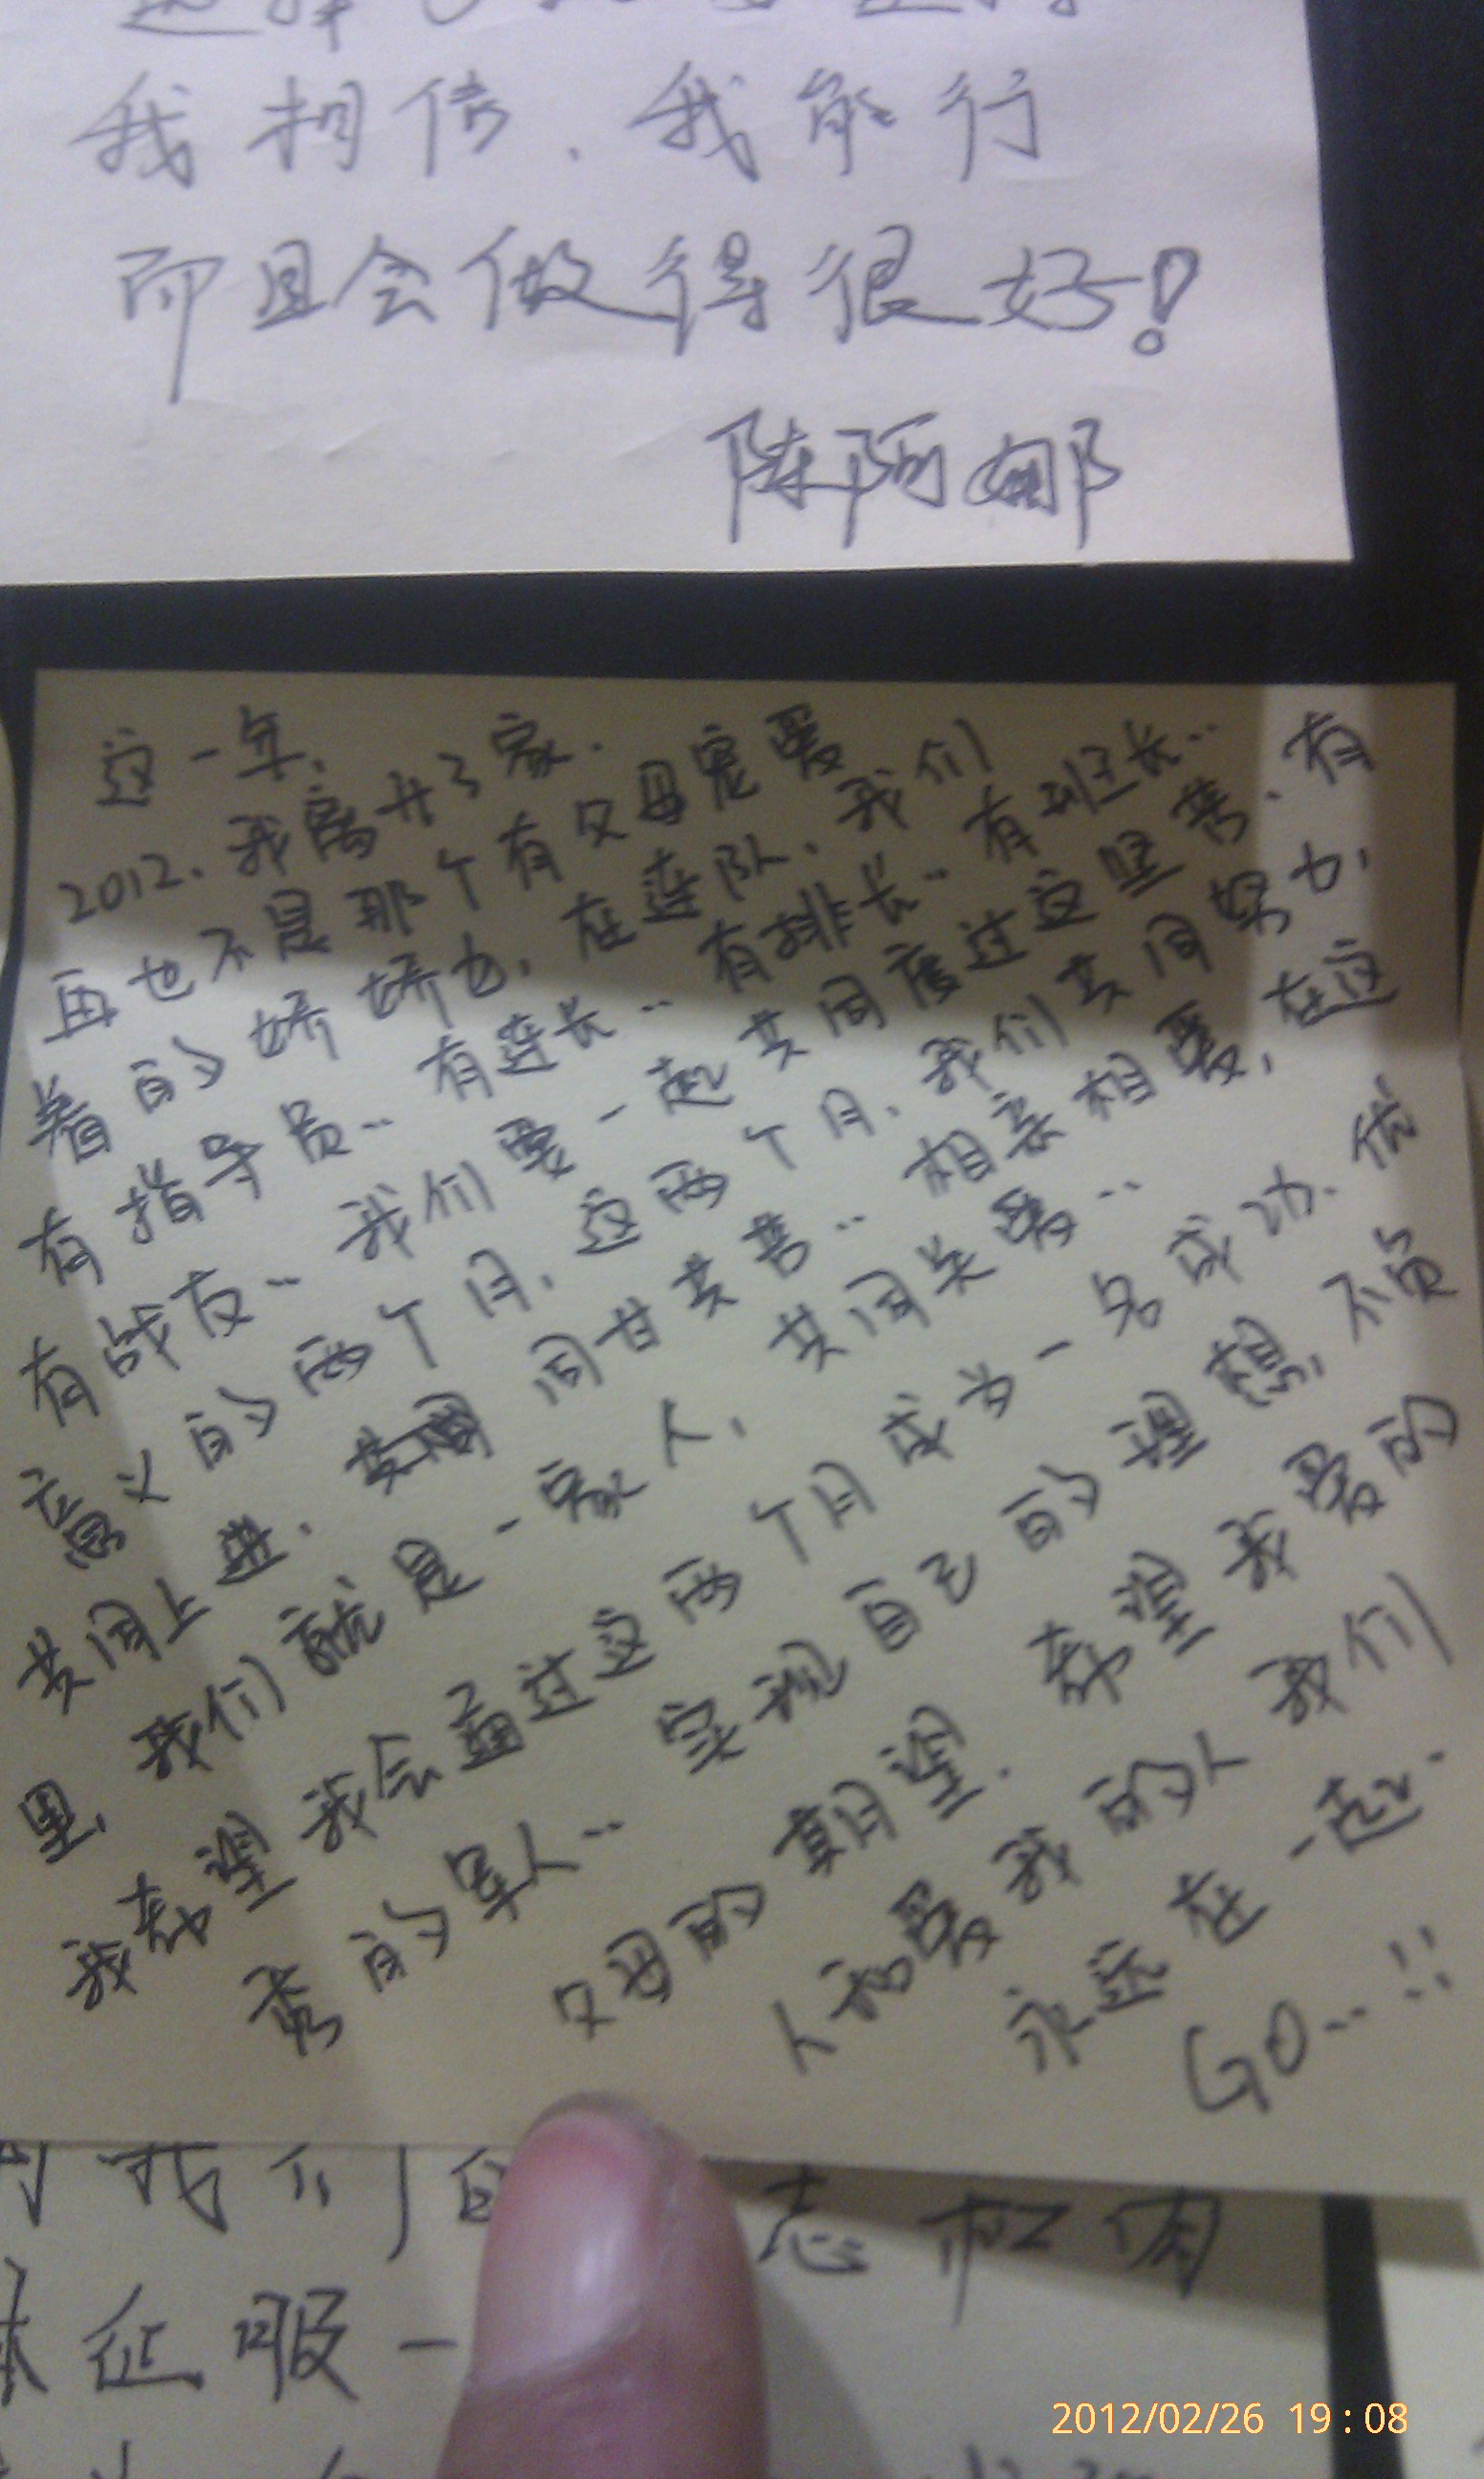 我相信.我能行
而且会做得很好!
陈阿娜
这一年,
2012.我离开了家.
再也不是那个有父母宠爱
着的娇娇女,在连队,我们
有指导员..有连长..有排长..有班长..
有战友..我们要一起共同度过这里苦、有
意义的两个月,这两个月,我们共同努力,
共同上进.同甘共苦..相亲相爱,在这
里,我们就是一家人,共同关爱..
我希望我会通过这两个月成为一名成功、优
秀的军人..实现自己的理想,不负
父母的期望.希望我爱的
人和爱我的人我们
永远在一起.
GO..!!
我们的 志和肉
体征服一
2012/02/26 19:08